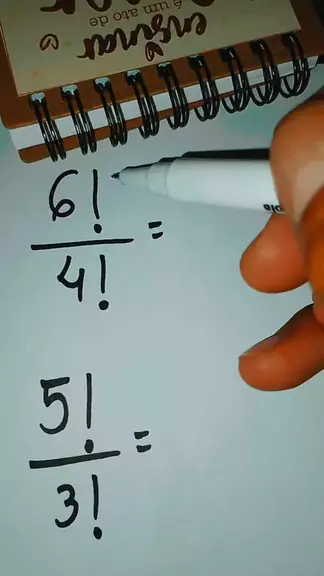 ensinar
é um ato de
6!
—— =
4!
5!
—— =
3!